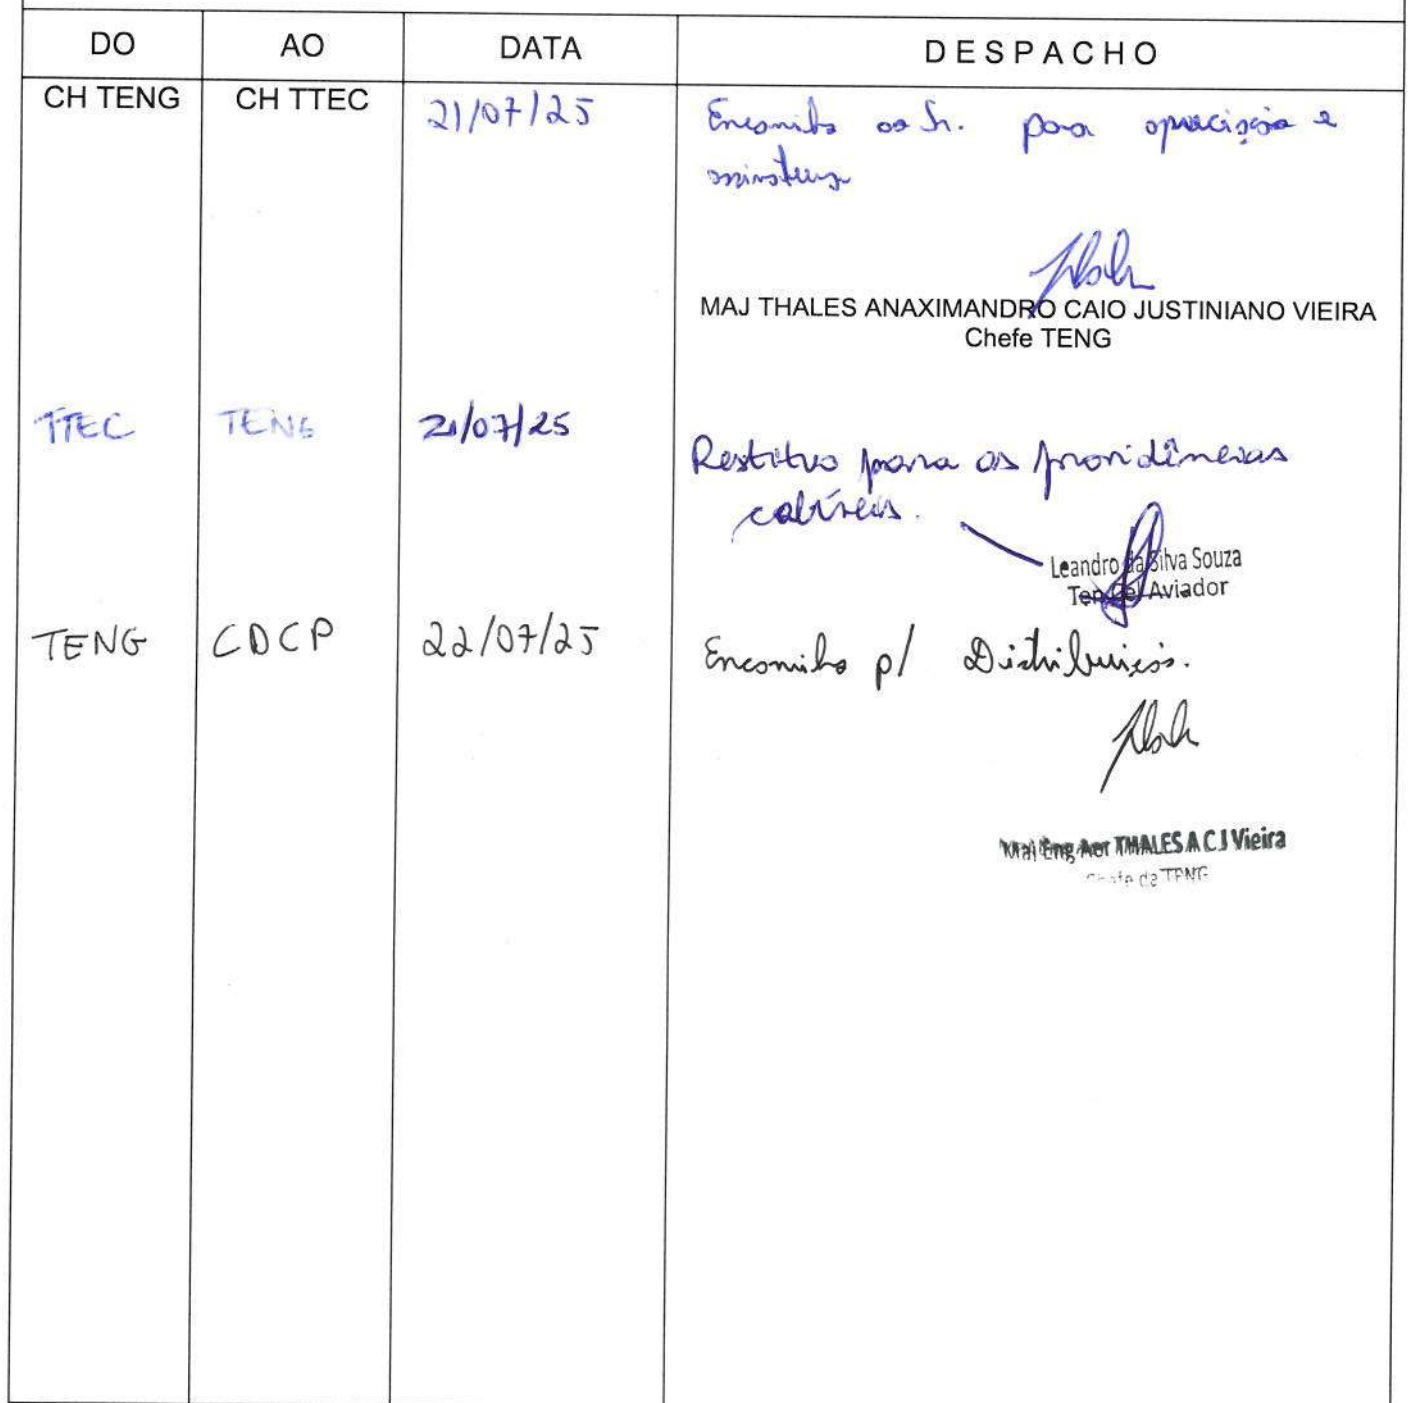 DO AO DATA DESPACHO
CH TENG CH TTEC 21/07/25 Encaminho ao Sr. para apreciação e
assinatura
MAJ THALES ANAXIMANDRO CAIO JUSTINIANO VIEIRA
Chefe TENG
TTEC TENG 21/07/25
Restituo para as providências
cabíveis.
Leandro da Silva Souza
Ten Cel Aviador
TENG CDCP 22/07/25 Encaminho p/ Distribuição.
Maj Eng Aer THALES A C J Vieira
Chefe da TENG